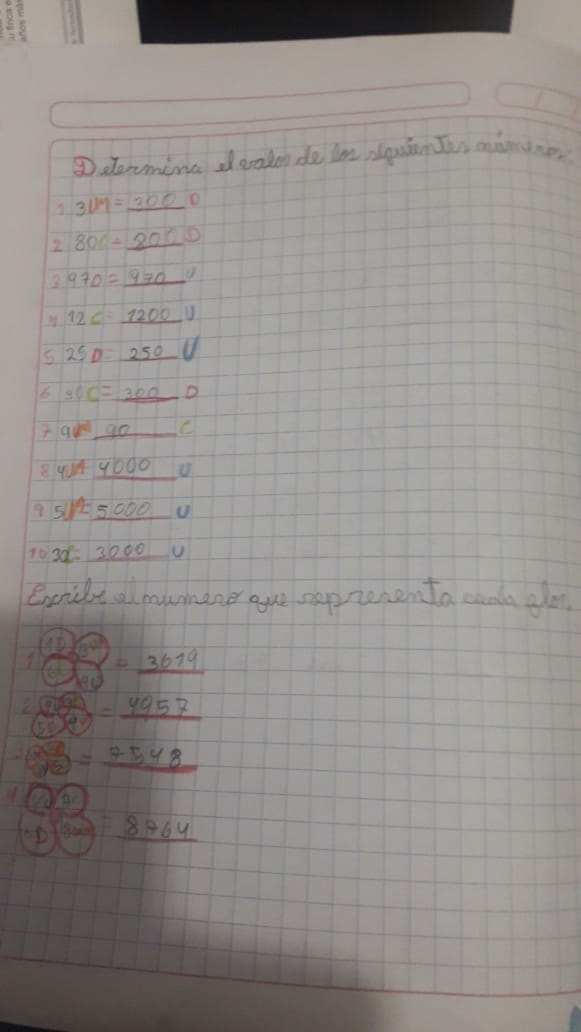 Determina el valor de los siguientes números:
1 3UM = 300 D
2 80C = 800 D
3 97D = 970 U
4 12C = 1200 U
5 25D = 250 U
6 30C = 300 D
7 9UM 90 C
8 4UM 4000 U
9 5UM 5000 U
10 30C = 3000 U
Escribe el numero que representa cada flor.
1 1D 3UM 9U = 3619
2 = 4957
3 = 7548
4 = 8764